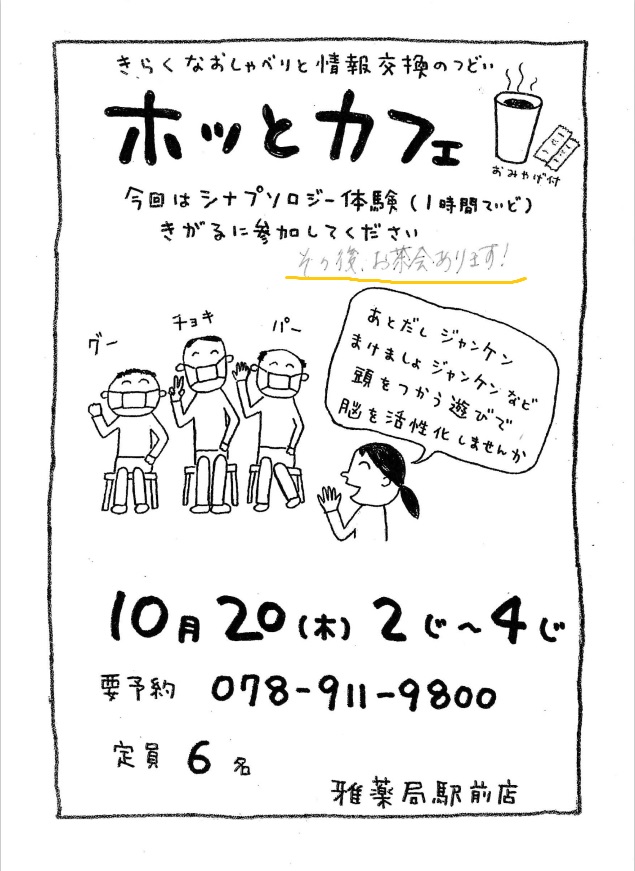 きらくなおしゃべりと情報交換のつどい
ホッとカフェ
おみやげ付
今回はシナプソロジー体験(1時間ていど)
きがるに参加してください
その後、お茶会あります!
グー
チョキ
パー
あとだしジャンケン
まけましょジャンケンなど
頭をつかう遊びで
脳を活性化しませんか
10月20(木)2じ~4じ
要予約 078-911-9800
定員6名
雅薬局駅前店